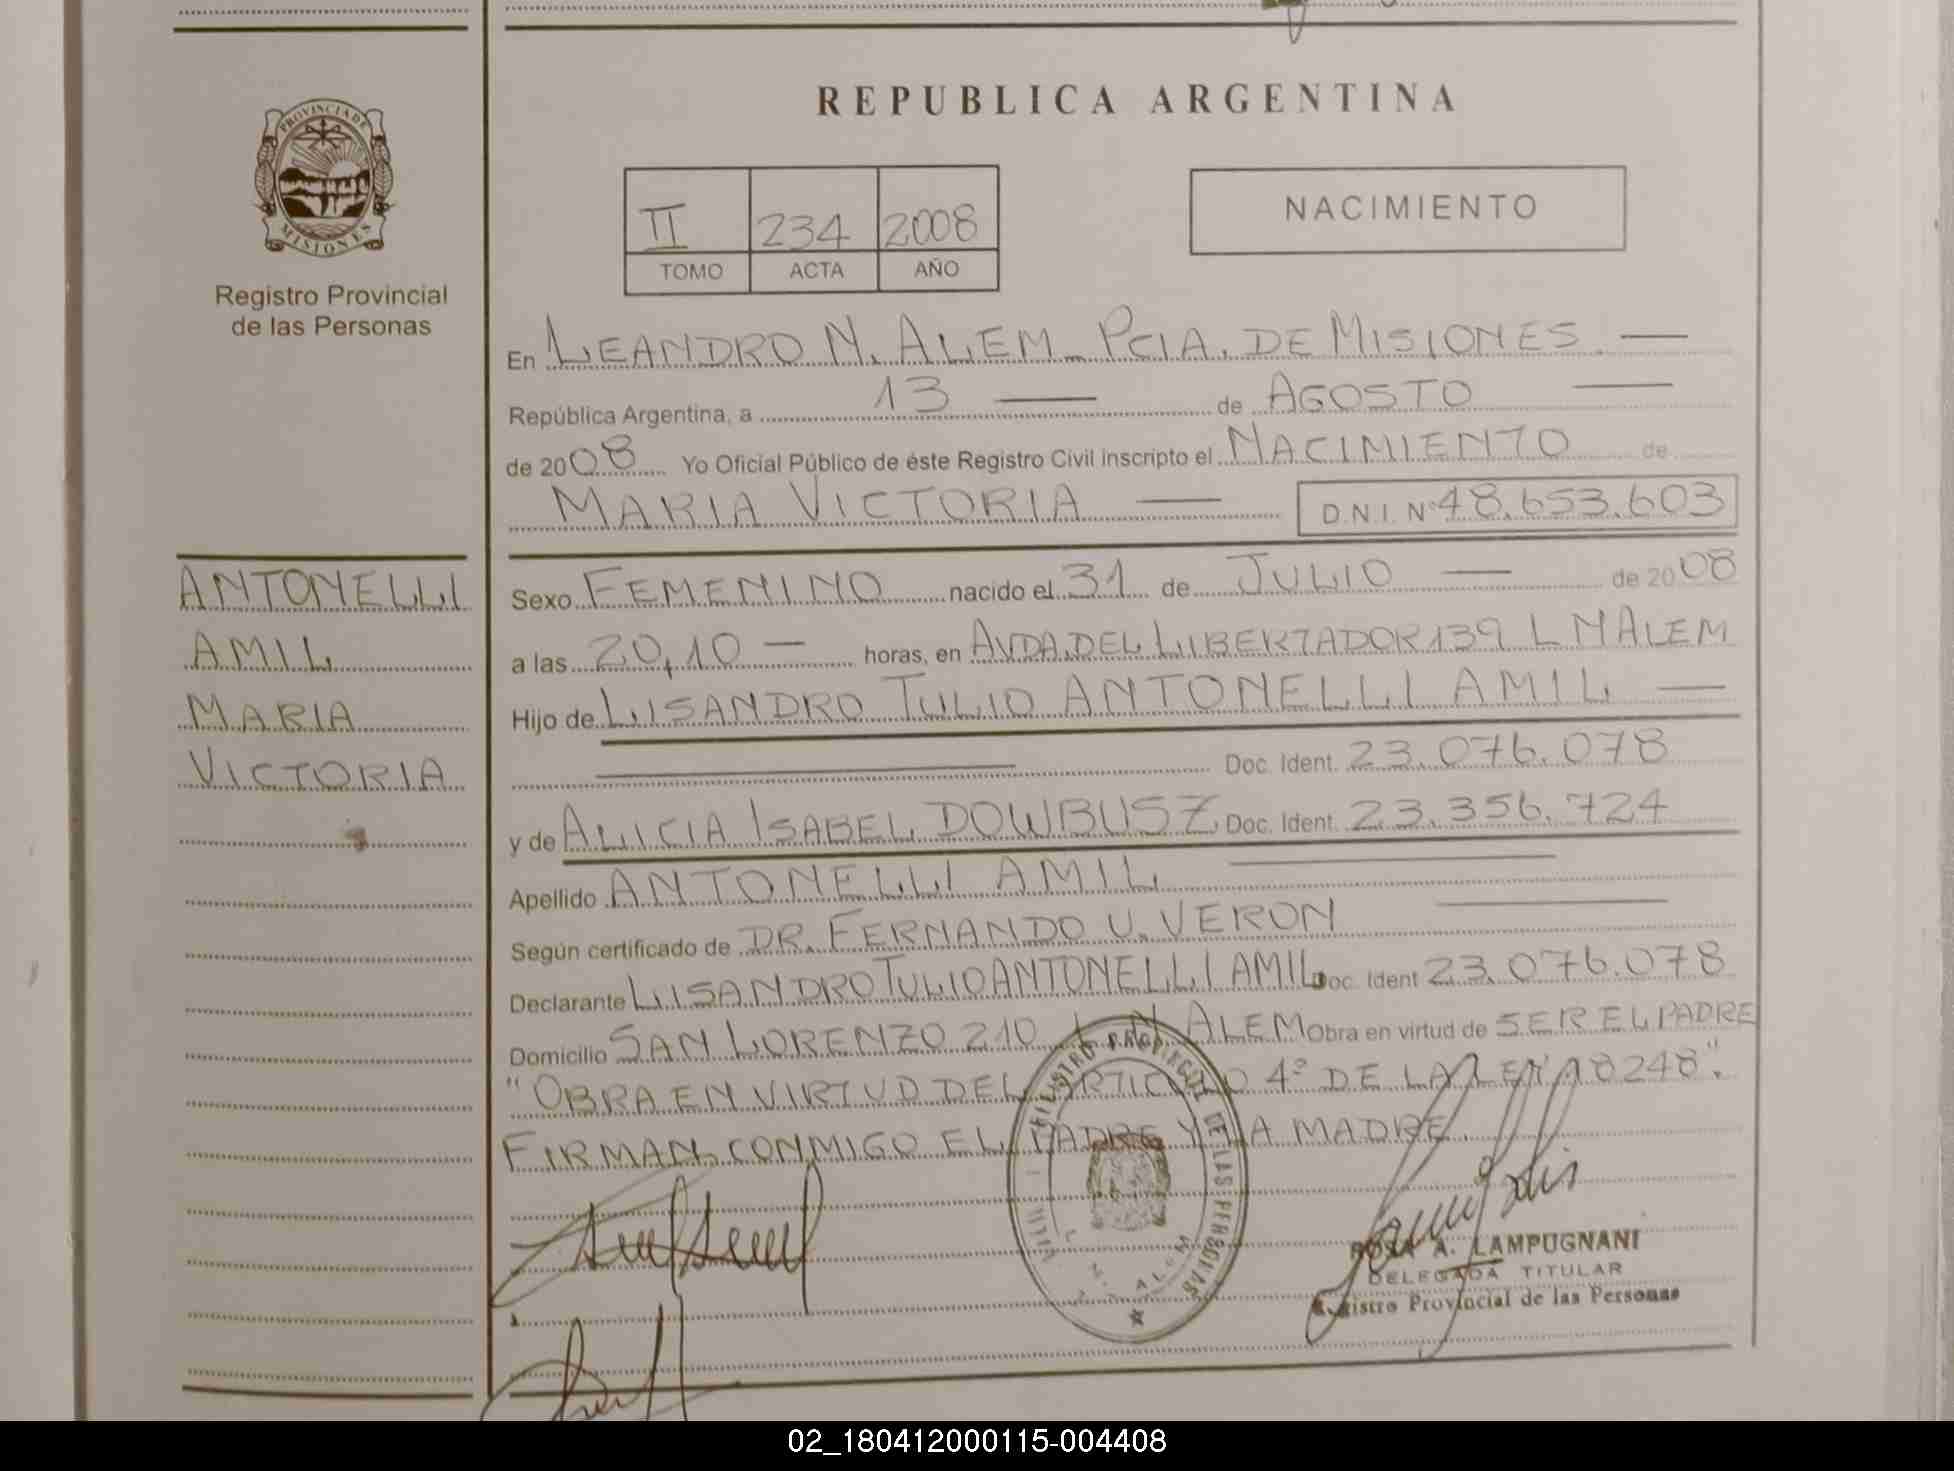 PROVINCIA DE
MISIONES
Registro Provincial
de las Personas
REPUBLICA ARGENTINA
II 234 2008
TOMO ACTA AÑO
NACIMIENTO
En LEANDRO N. ALEM - PCIA. DE MISIONES. —
República Argentina, a 13 — de AGOSTO —
de 2008 Yo Oficial Público de éste Registro Civil inscripto el NACIMIENTO de
MARIA VICTORIA — D.N.I. Nº 48.653.603
ANTONELLI
AMIL
MARIA
VICTORIA
Sexo FEMENINO nacido el 31 de JULIO — de 2008
a las 20,10 — horas, en AVDA. DEL LIBERTADOR 139 L N ALEM
Hijo de LISANDRO TULIO ANTONELLI AMIL —
Doc. Ident. 23.076.078
y de ALICIA ISABEL DOWBUSZ Doc. Ident. 23.356.724
Apellido ANTONELLI AMIL
Según certificado de DR. FERNANDO U. VERON
Declarante LISANDRO TULIO ANTONELLI AMIL Doc. Ident 23.076.078
Domicilio SAN LORENZO 210 L N ALEM Obra en virtud de SER EL PADRE
"OBRA EN VIRTUD DEL ARTICULO 4º DE LA LEY 18248".
FIRMAN CONMIGO EL PADRE Y LA MADRE.
REGISTRO PROVINCIAL DE LAS PERSONAS
L. N. ALEM
ROSA A. LAMPUGNANI
DELEGADA TITULAR
Registro Provincial de las Personas
02_180412000115-004408